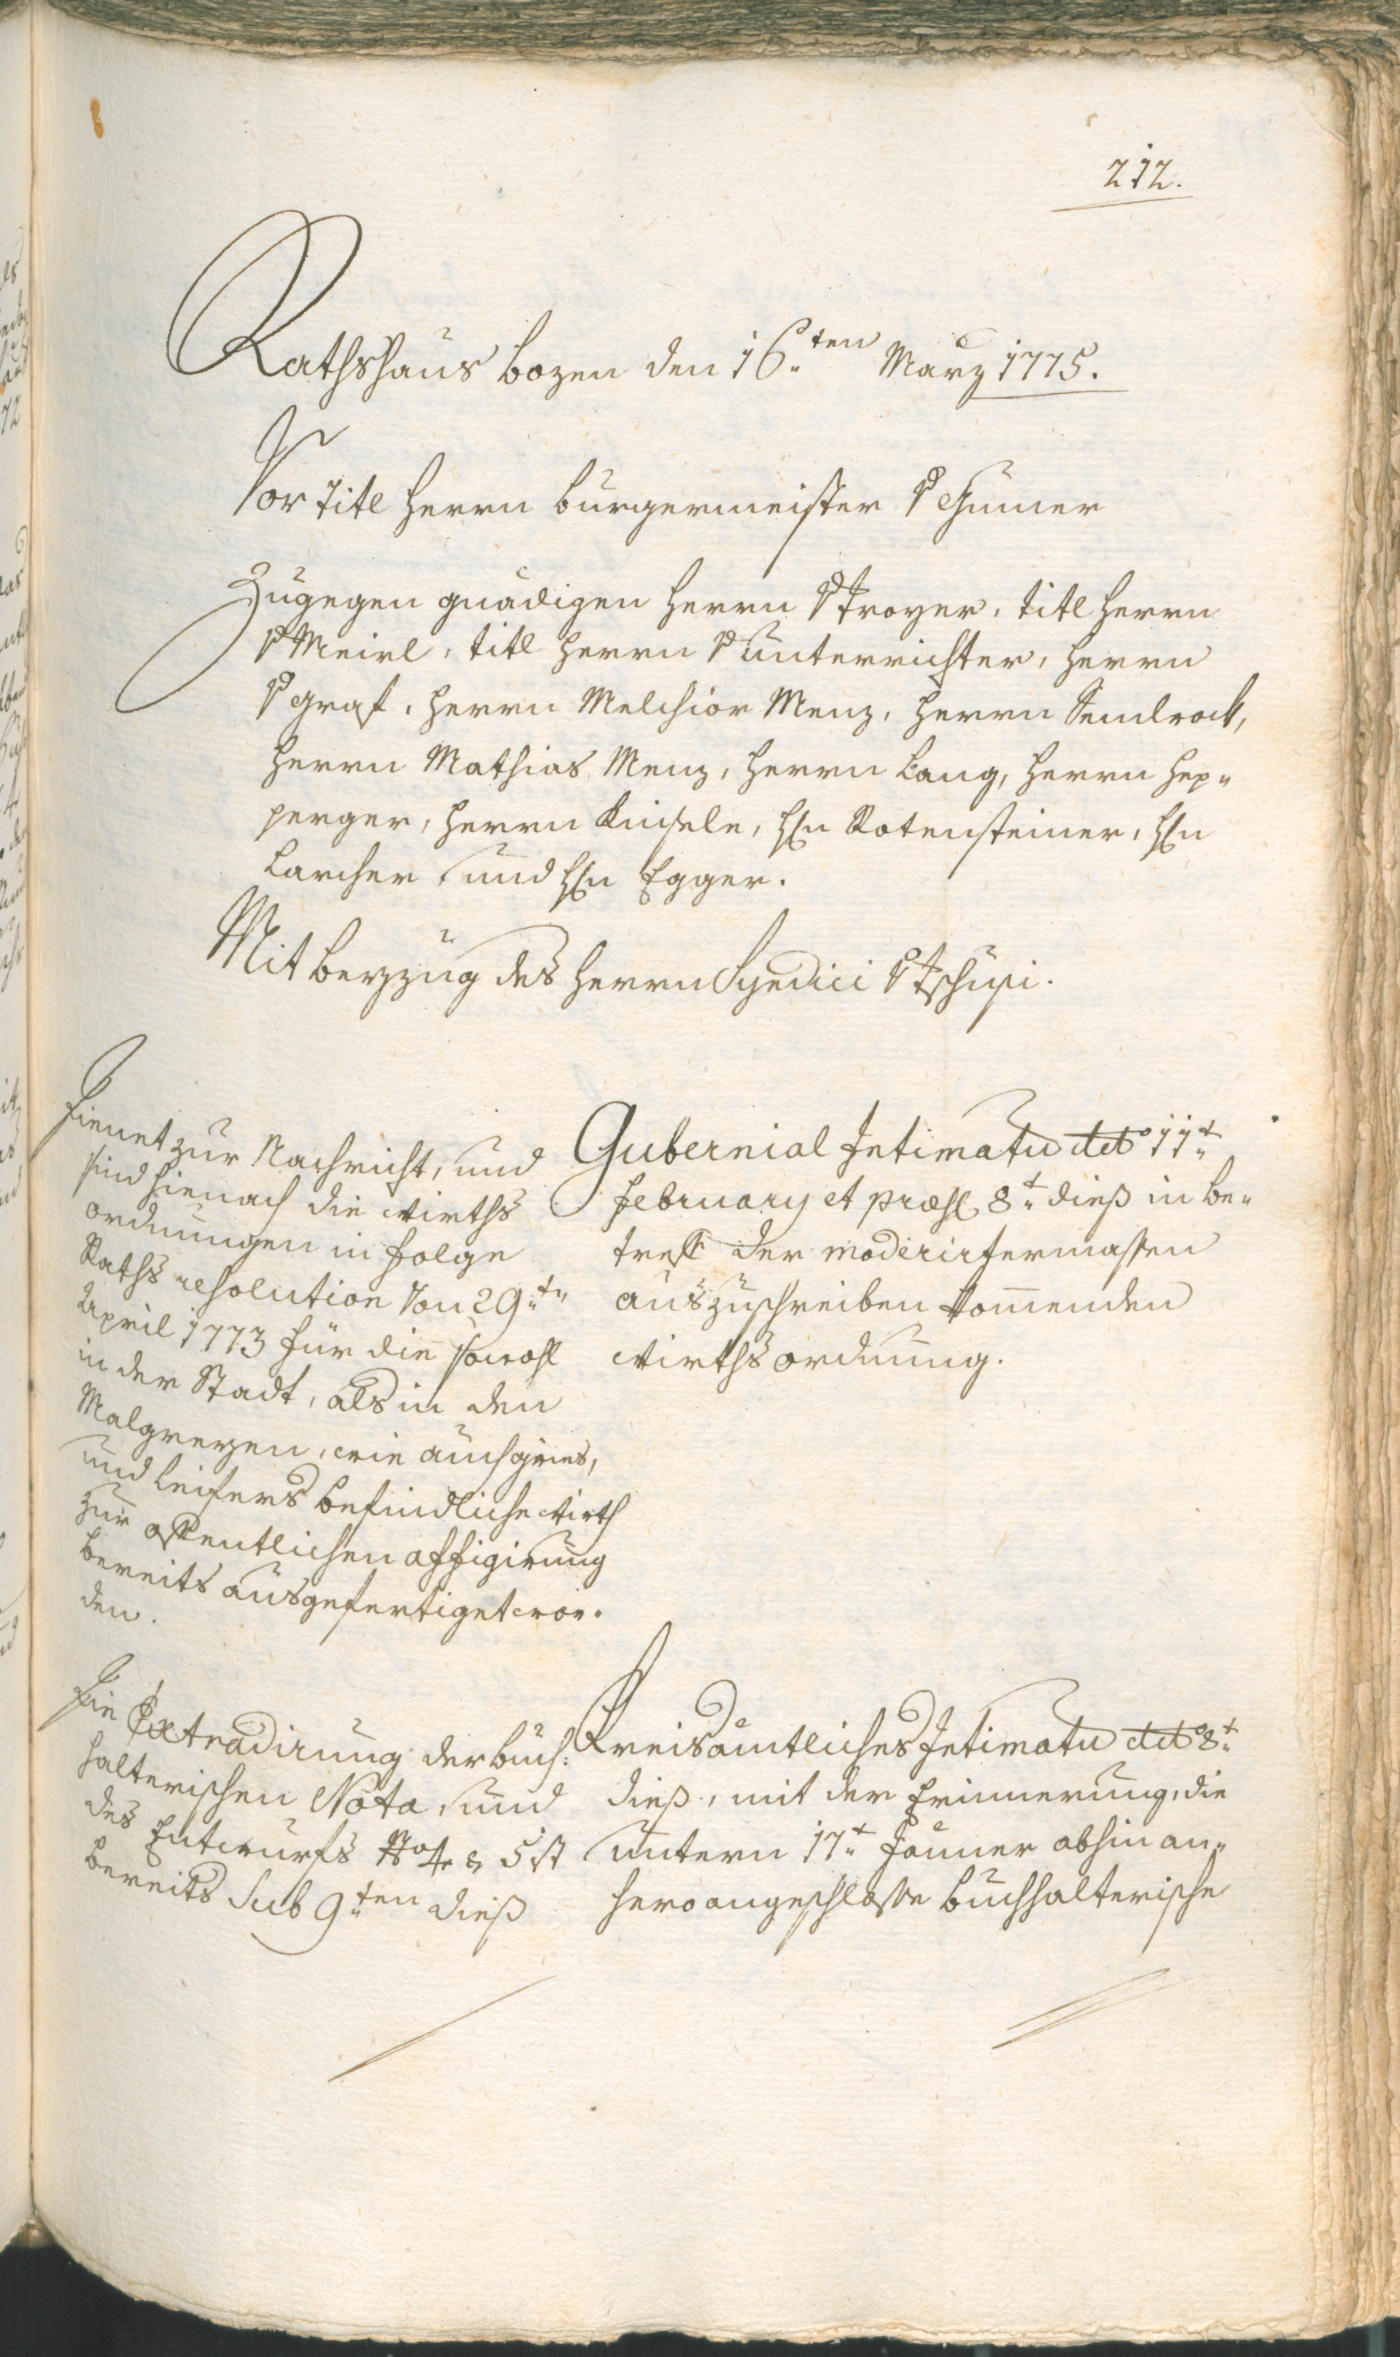 212.
Rathshaus Bozen den 16.ten März 1775.
Vor Titl Herrn Burgermeister v Gumer
Zugegen gnädigen Herrn v Troyer, titl Herrn
v Meirl, titl Herrn v Unterrichter, Herrn
v Graf, Herrn Melchior Menz, Herrn Sendrock,
Herrn Mathias Menz, Herrn Lang, Herrn Hep„
perger, Herrn Kinsele, H. Rotensteiner, H.
Larcher und H. Egger.
Mit Beyzug des Herrn Syndici v Tschusi.
Dienet zur Nachricht, und
sind hienach die Wirths
ordnungen in Folge
Raths resolution von 29.t
April 1773 für die sowohl
in der Stadt, als in den
Malgreyen, wie auch Gries,
und Leifers befindliche Wirth
zur offentlichen affigirung
bereits ausgefertiget wor„
den.
Gubernial Intimatum dto 11.t
February et præs. 8.t dieß in be„
treff der moderirtermassen
auszuschreiben komenden
Wirthsordnung.
Die Extradirung der buch:
halterischen Nota, und
des Entwurfs No 4 & 5 ist
bereits sub 9.ten dieß
Kreisämtliches Intimatum dto 8.t
dieß, mit der Erinnerung, die
untern 17.t Jänner abhin an„
hero angeschlosse buchhalterische